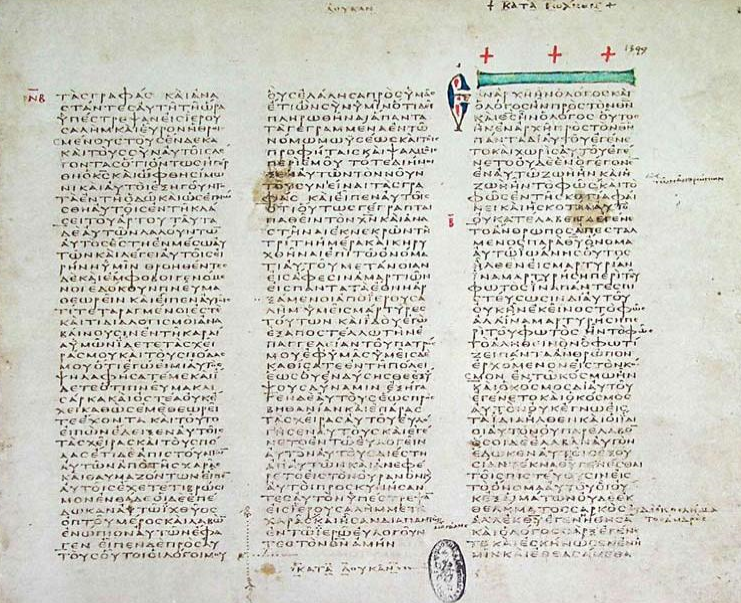 ΛΟΥΚΑΝ
+ ΚΑΤΑ ΙΩΑΝΗΝ +
1349
ΝΒ
ΤΑΣΓΡΑΦΑΣ ΚΑΙΑΝΑ
ΣΤΑΝΤΕΣΑΥΤΗΤΗΩΡΑ
ΥΠΕΣΤΡΕΨΑΝΕΙΣΙΕΡΟΥ
ΣΑΛΗΜΚΑΙΕΥΡΟΝΗΘΡΟΙ
ΜΕΝΟΥΣΤΟΥΣΕΝΔΕΚΑ
ΚΑΙΤΟΥΣΣΥΝΑΥΤΟΙΣΛΕ
ΓΟΝΤΑΣΟΤΙΟΝΤΩΣΗΓΕΡ
ΘΗΟΚΣΚΑΙΩΦΘΗΣΙΜΩ
ΝΙΚΑΙΑΥΤΟΙΕΞΗΓΟΥΝΤΟ
ΤΑΕΝΤΗΟΔΩΚΑΙΩΣΕΓΝΩ
ΣΘΗΑΥΤΟΙΣΕΝΤΗΚΛΑ
ΣΕΙΤΟΥΑΡΤΟΥΤΑΥΤΑ
ΔΕΑΥΤΩΝΛΑΛΟΥΝΤΩ
ΑΥΤΟΣΕΣΤΗΕΝΜΕΣΩΑΥ
ΤΩΝΚΑΙΛΕΓΕΙΑΥΤΟΙΣΕΙ
ΡΗΝΗΥΜΙΝ ΘΡΟΗΘΕΝΤΕΣ
ΔΕΚΑΙΕΜΦΟΒΟΙΓΕΝΟΜΕ
ΝΟΙΕΔΟΚΟΥΝΠΝΕΥΜΑ
ΘΕΩΡΕΙΝ ΚΑΙΕΙΠΕΝΑΥΤΟΙΣ
ΤΙΤΕΤΑΡΑΓΜΕΝΟΙΕΣΤΕ
ΚΑΙΤΙΔΙΑΛΟΓΙΣΜΟΙΑΝΑ
ΒΑΙΝΟΥΣΙΝΕΝΤΗΚΑΡΔΙ
ΑΥΜΩΝΙΔΕΤΕΤΑΣΧΕΙ
ΡΑΣΜΟΥΚΑΙΤΟΥΣΠΟΔΑΣ
ΜΟΥΟΤΙΕΓΩΕΙΜΙΑΥΤΟΣ
ΨΗΛΑΦΗΣΑΤΕΜΕΚΑΙΙ
ΔΕΤΕΟΤΙΠΝΕΥΜΑΚΑΙ
ΣΑΡΚΑΚΑΙΟΣΤΕΑΟΥΚΕ
ΧΕΙΚΑΘΩΣΕΜΕΘΕΩΡΕΙ
ΤΕΕΧΟΝΤΑ ΚΑΙΤΟΥΤΟ
ΕΙΠΩΝΕΔΕΙΞΕΝΑΥΤΟΙΣ
ΤΑΣΧΕΙΡΑΣΚΑΙΤΟΥΣΠΟ
ΔΑΣΕΤΙΔΕΑΠΙΣΤΟΥΝΤΩ
ΑΥΤΩΝΑΠΟΤΗΣΧΑΡΑΣ
ΚΑΙΘΑΥΜΑΖΟΝΤΩΝΕΙΠΕΝ
ΑΥΤΟΙΣΕΧΕΤΕΤΙΒΡΩΣΙ
ΜΟΝΕΝΘΑΔΕΟΙΔΕΕΠΕ
ΔΩΚΑΝΑΥΤΩΙΧΘΥΟΣ
ΟΠΤΟΥΜΕΡΟΣΚΑΙΛΑΒΩ
ΕΝΩΠΙΟΝΑΥΤΩΝΕΦΑ
ΓΕΝ ΕΙΠΕΝΔΕΠΡΟΣΑΥ
ΤΟΥΣΟΥΤΟΙΟΙΛΟΓΟΙΜΟΥ
ΟΥΣΕΛΑΛΗΣΑΠΡΟΣΥΜΑΣ
ΕΤΙΩΝΣΥΝΥΜΙΝΟΤΙΔΕΙ
ΠΛΗΡΩΘΗΝΑΙΑΠΑΝΤΑ
ΤΑΓΕΓΡΑΜΜΕΝΑΕΝΤΩ
ΝΟΜΩΜΩΥΣΕΩΣΚΑΙΤΟΙΣ
ΠΡΟΦΗΤΑΙΣΚΑΙΨΑΛΜΟΙΣ
ΠΕΡΙΕΜΟΥ ΤΟΤΕΔΙΗΝΟΙ
ΞΕΝΑΥΤΩΝΤΟΝΝΟΥΝ
ΤΟΥΣΥΝΕΙΝΑΙΤΑΣΓΡΑ
ΦΑΣ ΚΑΙΕΙΠΕΝΑΥΤΟΙΣ
ΟΤΙΟΥΤΩΣΓΕΓΡΑΠΤΑΙ
ΠΑΘΕΙΝΤΟΝΧΝΚΑΙΑΝΑ
ΣΤΗΝΑΙΕΚΝΕΚΡΩΝΤΗ
ΤΡΙΤΗΗΜΕΡΑΚΑΙΚΗΡΥ
ΧΘΗΝΑΙΕΠΙΤΩΟΝΟΜΑ
ΤΙΑΥΤΟΥΜΕΤΑΝΟΙΑΝ
ΕΙΣΑΦΕΣΙΝΑΜΑΡΤΙΩΝ
ΕΙΣΠΑΝΤΑΤΑΕΘΝΗΑΡ
ΞΑΜΕΝΟΙΑΠΟΙΕΡΟΥΣΑ
ΛΗΜΥΜΕΙΣΜΑΡΤΥΡΕΣ
ΤΟΥΤΩΝ ΚΑΙΙΔΟΥΕΓΩ
ΕΞΑΠΟΣΤΕΛΛΩΤΗΝΕ
ΠΑΓΓΕΛΙΑΝΤΟΥΠΑΤΡΟΣ
ΜΟΥΕΦΥΜΑΣΥΜΕΙΣΔΕ
ΚΑΘΙΣΑΤΕΕΝΤΗΠΟΛΕΙ
ΕΩΣΟΥΕΝΔΥΣΗΣΘΕΕΞΥ
ΨΟΥΣΔΥΝΑΜΙΝ ΕΞΗΓΑ
ΓΕΝΔΕΑΥΤΟΥΣΕΩΣΠΡΟΣ
ΒΗΘΑΝΙΑΝΚΑΙΕΠΑΡΑΣ
ΤΑΣΧΕΙΡΑΣΑΥΤΟΥΕΥΛΟ
ΓΗΣΕΝΑΥΤΟΥΣΚΑΙΕΓΕ
ΝΕΤΟΕΝΤΩΕΥΛΟΓΕΙΝ
ΑΥΤΟΝΑΥΤΟΥΣΔΙΕΣΤΗ
ΑΠΑΥΤΩΝ ΚΑΙΑΝΕΦΕ
ΡΕΤΟΕΙΣΤΟΝΟΥΡΑΝΟΝΚΑΙ
ΑΥΤΟΙΠΡΟΣΚΥΝΗΣΑΝ
ΤΕΣΑΥΤΟΝΥΠΕΣΤΡΕΨΑΝ
ΕΙΣΙΕΡΟΥΣΑΛΗΜΜΕΤΑ
ΧΑΡΑΣΚΑΙΗΣΑΝΔΙΑΠΑΝΤΟΣ
ΕΝΤΩΙΕΡΩΕΥΛΟΓΟΥΝ
ΤΕΣΤΟΝΘΝ ΑΜΗΝ
ΚΑΤΑ ΛΟΥΚΑΝ
ΕΝΑΡΧΗΗΝΟΛΟΓΟΣΚΑΙ
ΟΛΟΓΟΣΗΝΠΡΟΣΤΟΝΘΝ
ΚΑΙΘΣΗΝΟΛΟΓΟΣ ΟΥΤΟΣ
ΗΝΕΝΑΡΧΗΠΡΟΣΤΟΝΘΝ
ΠΑΝΤΑΔΙΑΥΤΟΥΕΓΕΝΕ
ΤΟΚΑΙΧΩΡΙΣΑΥΤΟΥΕΓΕ
ΝΕΤΟΟΥΔΕΕΝΟΓΕΓΟΝΕΝ
ΕΝΑΥΤΩΖΩΗΗΝΚΑΙΗ
ΖΩΗΗΝΤΟΦΩΣΚΑΙΤΟ
ΦΩΣΕΝΤΗΣΚΟΤΙΑΦΑΙ
ΝΕΙΚΑΙΗΣΚΟΤΙΑΑΥΤΟ
ΟΥΚΑΤΕΛΑΒΕΝ ΕΓΕΝΕ
Β
ΤΟΑΝΘΡΩΠΟΣΑΠΕΣΤΑΛ
ΜΕΝΟΣΠΑΡΑΘΥΟΝΟΜΑ
ΑΥΤΩΙΩΑΝΗΣΟΥΤΟΣ
ΗΛΘΕΝΕΙΣΜΑΡΤΥΡΙΑΝ
ΙΝΑΜΑΡΤΥΡΗΣΗΠΕΡΙΤΟΥ
ΦΩΤΟΣΙΝΑΠΑΝΤΕΣΠΙ
ΣΤΕΥΣΩΣΙΝΔΙΑΥΤΟΥ
ΟΥΚΗΝΕΚΕΙΝΟΣΤΟΦΩΣ
ΑΛΛΙΝΑΜΑΡΤΥΡΗΣΗΠΕ
ΡΙΤΟΥΦΩΤΟΣ ΗΝΤΟΦΩΣ
ΤΟΑΛΗΘΕΙΝΟΝΟΦΩΤΙ
ΖΕΙΠΑΝΤΑΑΝΘΡΩΠΟΝ
ΕΡΧΟΜΕΝΟΝΕΙΣΤΟΝΚΟ
ΣΜΟΝ ΕΝΤΩΚΟΣΜΩΗΝ
ΚΑΙΟΚΟΣΜΟΣΔΙΑΥΤΟΥ
ΕΓΕΝΕΤΟΚΑΙΟΚΟΣΜΟΣ
ΑΥΤΟΝΟΥΚΕΓΝΩΕΙΣ
ΤΑΙΔΙΑΗΛΘΕΝΚΑΙΟΙΙΔΙ
ΟΙΑΥΤΟΝΟΥΠΑΡΕΛΑΒΟΝ
ΟΣΟΙΔΕΕΛΑΒΑΝΑΥΤΟΝ
ΕΔΩΚΕΝΑΥΤΟΙΣΕΞΟΥ
ΣΙΑΝΤΕΚΝΑΘΥΓΕΝΕΣΘΑΙ
ΤΟΙΣΠΙΣΤΕΥΟΥΣΙΝΕΙΣ
ΤΟΟΝΟΜΑΑΥΤΟΥΟΙΟΥ
ΚΕΞΑΙΜΑΤΩΝΟΥΔΕΕΚ
ΘΕΛΗΜΑΤΟΣΣΑΡΚΟΣ
ΑΛΛΕΚΘΥΕΓΕΝΝΗΘΗΣΑ
ΚΑΙΟΛΟΓΟΣΣΑΡΞΕΓΕΝΕ
ΤΟΚΑΙΕΣΚΗΝΩΣΕΝΕΝΗ
ΜΙΝΚΑΙΕΘΕΑΣΑΜΕΘΑ
ΤΩΝΑΝΘΡΩΠΩΝ
ΟΥΔΕΕΚΘΕΛΗΜΑ
ΤΟΣΑΝΔΡΟΣ